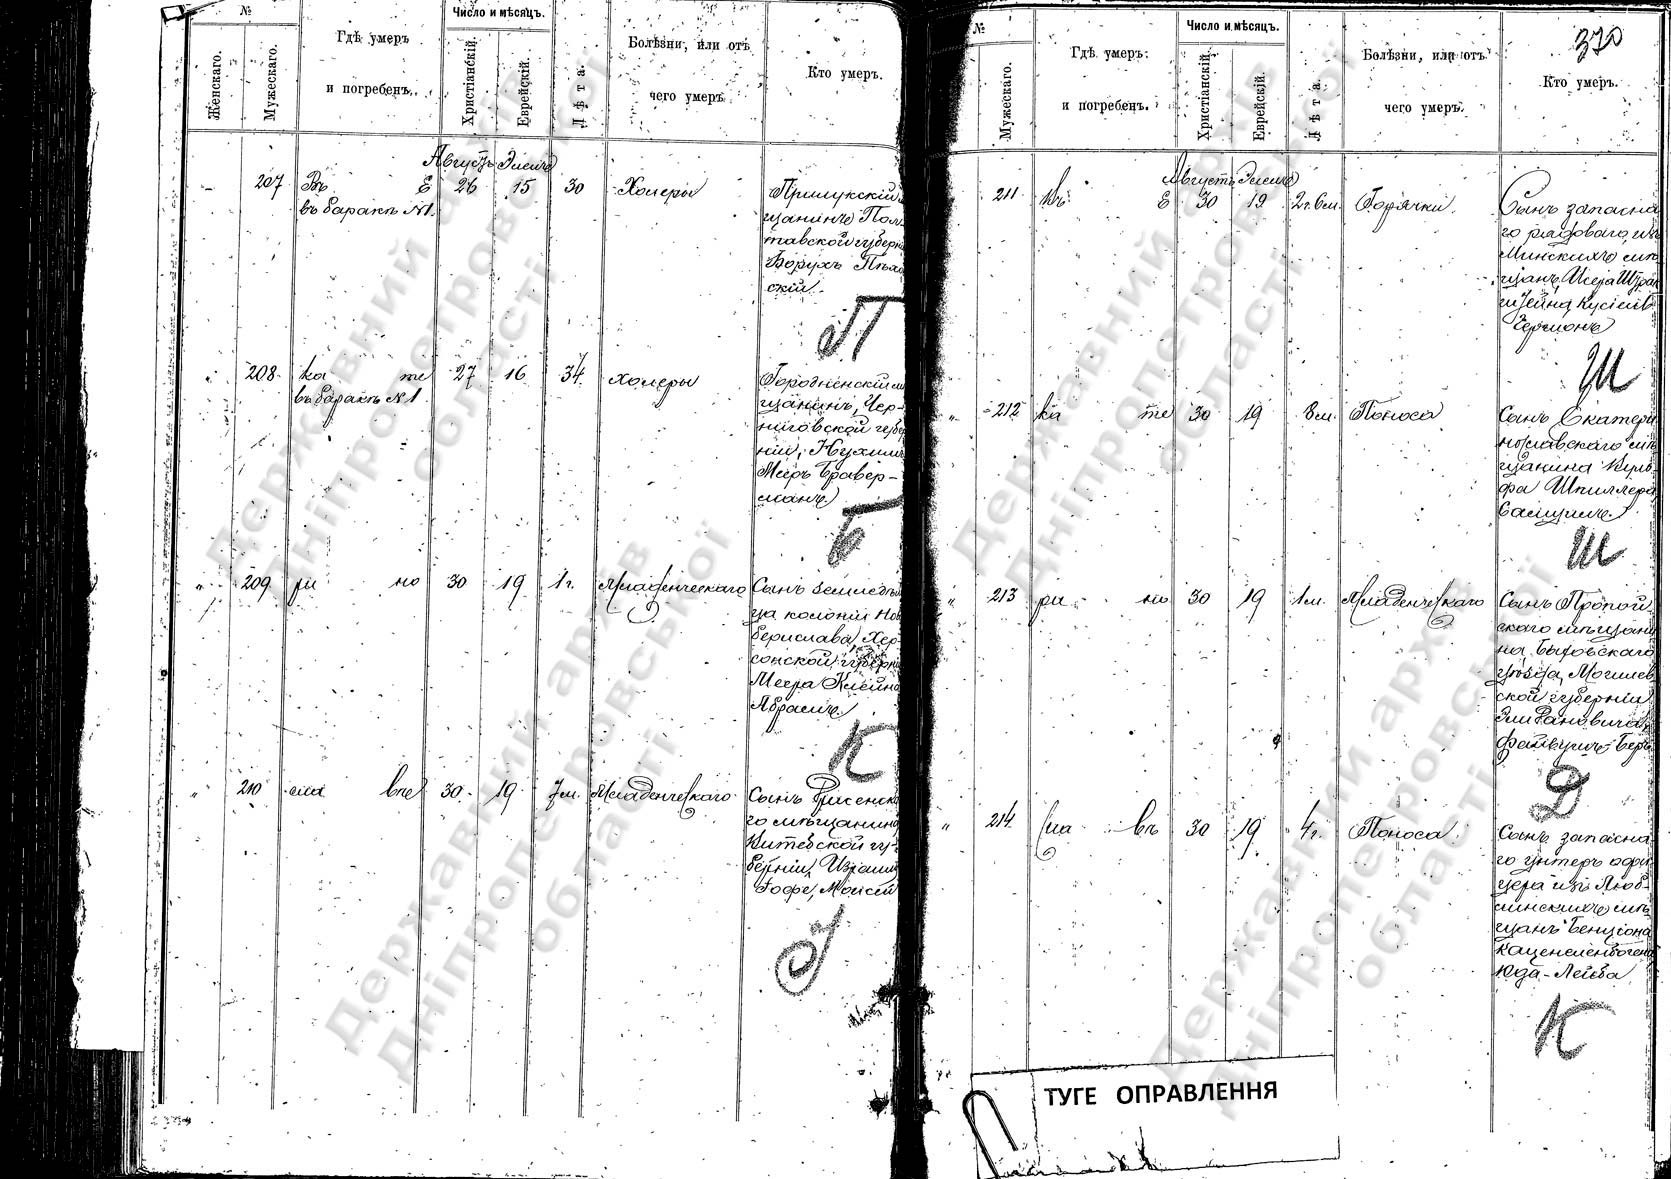 №
Женскаго.
Мужескаго.
Гдѣ умеръ
и погребенъ.
Число и мѣсяцъ.
Христіанскій.
Еврейскій.
Лѣта.
Болѣзни, или отъ
чего умеръ
Кто умеръ.
Августъ Элелъ
207 Въ Е 26 15 30 Холеры
въ баракѣ №1.
Прилукскій
щанинъ Пол
тавской губерн
Борухъ
скій.
П
208 ка те 27 16 34 холеры
въ баракѣ №1
Городненскій м
щанинъ, Чер-
ниговской губер
ніи, Нухимъ
Меръ Бравер-
манъ
Б
" 209 ри но 30 19 1 г. Младенческаго
Сынъ земледѣл
ца колоніи Нов
берислава, Хер-
сонской губерн
Меера Клейна
Абрамъ
К
" 210 сла вѣ 30 19 7 м. Младенческаго
Сынъ
го мѣщанина
Витебской гу-
берніи, Израиля
Гофе, Моисей
№
Мужескаго.
Гдѣ умеръ
и погребенъ.
Число и мѣсяцъ.
Христіанскій.
Еврейскій.
Лѣта.
Болѣзни, или отъ
чего умеръ.
370
Кто умеръ.
Августъ Элелъ
211 Въ Е 30 19 2 г. 6 м. Горячки.
Сынъ запасна
го рядоваго, изъ
Минскихъ мѣ
щанъ,
Гершонъ
Ш
" 212 ка те 30 19 8 м. Поноса
Сынъ Екатери
нославскаго мѣ
щанина Вуль
фа Шпиллера
Самуилъ.
Ш
" 213 ри но 30 19 1 м. Младенческаго
Сынъ Пропой
скаго мѣщани
на, Быховскаго
уѣзда, Могилев
ской губерніи
Эли
Файвушъ-Беръ
Д
" 214 сла въ 30 19 4 г. Поноса
Сынъ запасна
го унтеръ офи
цера изъ Люб-
линскихъ мѣ
щанъ Бенціона
Каценеленбогена
Юда-Лейба
К
ТУГЕ ОПРАВЛЕННЯ
Державний архів
Дніпропетровської
області